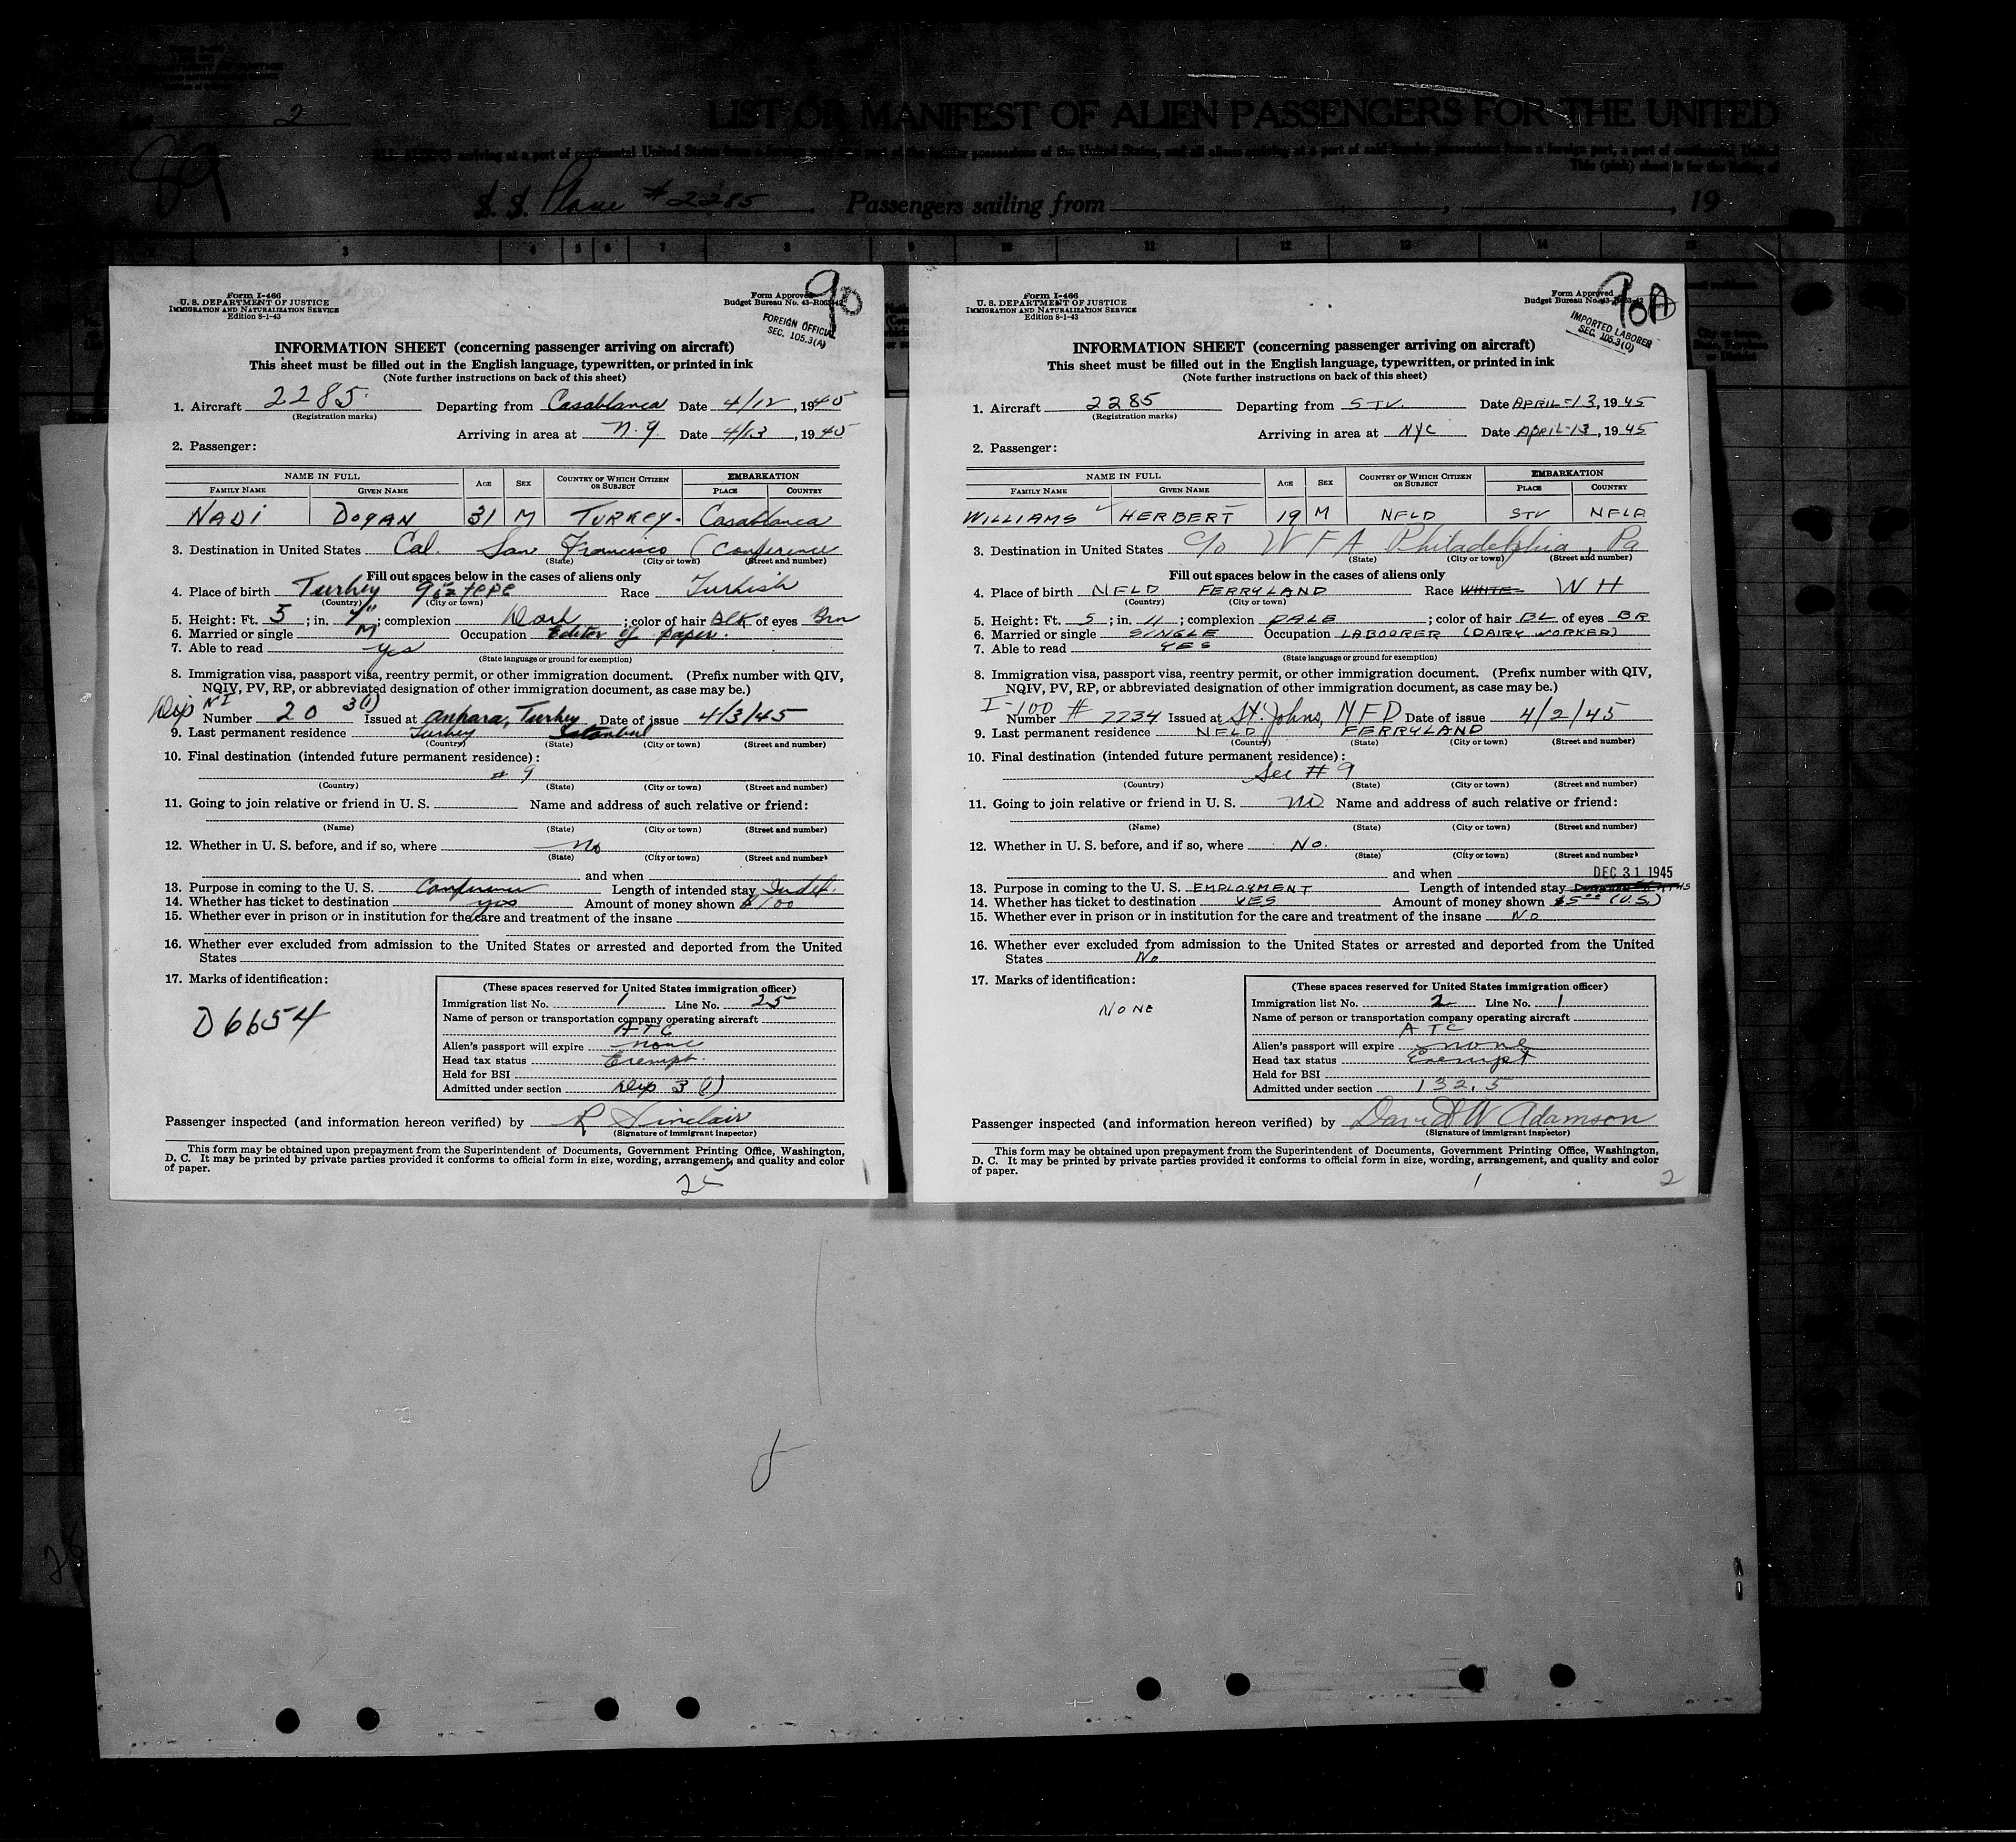 2
89
LIST OR MANIFEST OF ALIEN PASSENGERS FOR THE UNITED
ALL ALIENS arriving at a port of continental United States from a foreign port
This (pink) sheet is for the listing of
S. S. Plane #2285 Passengers sailing from , , 19
3 4 5 6 7 8 9 10 11 12 13 14 15
Form I-466
U. S. DEPARTMENT OF JUSTICE
IMMIGRATION AND NATURALIZATION SERVICE
Edition 8-1-43
Form Approved
Budget Bureau No. 43-R063-42
90
FOREIGN OFFICIAL
SEC. 105.3(A)
INFORMATION SHEET (concerning passenger arriving on aircraft)
This sheet must be filled out in the English language, typewritten, or printed in ink
(Note further instructions on back of this sheet)
1. Aircraft 2285 Departing from Casablanca Date 4/12, 1945
(Registration marks)
Arriving in area at N.Y Date 4/13, 1945
2. Passenger:
NAME IN FULL AGE SEX COUNTRY OF WHICH CITIZEN OR SUBJECT EMBARKATION
FAMILY NAME GIVEN NAME PLACE COUNTRY
NADI DOGAN 31 M TURKEY. Casablanca
3. Destination in United States Cal. San Francisco (Conference
(State) (City or town) (Street and number)
Fill out spaces below in the cases of aliens only
4. Place of birth Turkey Göztepe Race Turkish
(Country) (City or town)
5. Height: Ft. 5; in. 7"; complexion Dark; color of hair Blk of eyes Brn
6. Married or single M Occupation Editor of paper.
7. Able to read yes
(State language or ground for exemption)
8. Immigration visa, passport visa, reentry permit, or other immigration document. (Prefix number with QIV,
NQIV, PV, RP, or abbreviated designation of other immigration document, as case may be.)
Dip NI 3(1)
Number 20 Issued at Ankara, Turkey Date of issue 4/3/45
9. Last permanent residence Turkey Istanbul
(Country) (State) (City or town) (Street and number)
10. Final destination (intended future permanent residence):
# 9
(Country) (State) (City or town) (Street and number)
11. Going to join relative or friend in U. S. Name and address of such relative or friend:
(Name) (State) (City or town) (Street and number)
12. Whether in U. S. before, and if so, where No
(State) (City or town) (Street and number)
and when
13. Purpose in coming to the U. S. Conference Length of intended stay Indef.
14. Whether has ticket to destination yes Amount of money shown $100
15. Whether ever in prison or in institution for the care and treatment of the insane
16. Whether ever excluded from admission to the United States or arrested and deported from the United
States
17. Marks of identification:
D6654
(These spaces reserved for United States immigration officer)
Immigration list No. 1 Line No. 25
Name of person or transportation company operating aircraft
ATC
Alien's passport will expire none
Head tax status Exempt.
Held for BSI
Admitted under section Dip 3 (1)
Passenger inspected (and information hereon verified) by R Sinclair
(Signature of immigrant inspector)
This form may be obtained upon prepayment from the Superintendent of Documents, Government Printing Office, Washington,
D. C. It may be printed by private parties provided it conforms to official form in size, wording, arrangement, and quality and color
of paper.
25 1
Form I-466
U. S. DEPARTMENT OF JUSTICE
IMMIGRATION AND NATURALIZATION SERVICE
Edition 8-1-43
Form Approved
Budget Bureau No. 43-R063-42
90A
IMPORTED LABORER
SEC. 105.3(O)
INFORMATION SHEET (concerning passenger arriving on aircraft)
This sheet must be filled out in the English language, typewritten, or printed in ink
(Note further instructions on back of this sheet)
1. Aircraft 2285 Departing from STV. Date APRIL-13, 1945
(Registration marks)
Arriving in area at NYC Date APRIL-13, 1945
2. Passenger:
NAME IN FULL AGE SEX COUNTRY OF WHICH CITIZEN OR SUBJECT EMBARKATION
FAMILY NAME GIVEN NAME PLACE COUNTRY
WILLIAMS HERBERT 19 M NFLD STV NFLD
3. Destination in United States c/o WFA Philadelphia, Pa
(State) (City or town) (Street and number)
Fill out spaces below in the cases of aliens only
4. Place of birth NFLD FERRYLAND Race WHITE WH
(Country) (City or town)
5. Height: Ft. 5; in. 11; complexion PALE; color of hair BL of eyes BR
6. Married or single SINGLE Occupation LABOORER (DAIRY WORKER)
7. Able to read YES
(State language or ground for exemption)
8. Immigration visa, passport visa, reentry permit, or other immigration document. (Prefix number with QIV,
NQIV, PV, RP, or abbreviated designation of other immigration document, as case may be.)
I-100 #
Number 7734 Issued at St. Johns, NFD Date of issue 4/2/45
9. Last permanent residence NFLD FERRYLAND
(Country) (State) (City or town) (Street and number)
10. Final destination (intended future permanent residence):
See #9
(Country) (State) (City or town) (Street and number)
11. Going to join relative or friend in U. S. no Name and address of such relative or friend:
(Name) (State) (City or town) (Street and number)
12. Whether in U. S. before, and if so, where No.
(State) (City or town) (Street and number)
and when DEC 31 1945
13. Purpose in coming to the U. S. EMPLOYMENT Length of intended stay
14. Whether has ticket to destination YES Amount of money shown $5.00 (U.S.)
15. Whether ever in prison or in institution for the care and treatment of the insane NO
16. Whether ever excluded from admission to the United States or arrested and deported from the United
States No
17. Marks of identification:
NONE
(These spaces reserved for United States immigration officer)
Immigration list No. 2 Line No. 1
Name of person or transportation company operating aircraft
ATC
Alien's passport will expire none
Head tax status Exempt
Held for BSI
Admitted under section 132.5
Passenger inspected (and information hereon verified) by David W Adamson
(Signature of immigrant inspector)
This form may be obtained upon prepayment from the Superintendent of Documents, Government Printing Office, Washington,
D. C. It may be printed by private parties provided it conforms to official form in size, wording, arrangement, and quality and color
of paper.
1 2